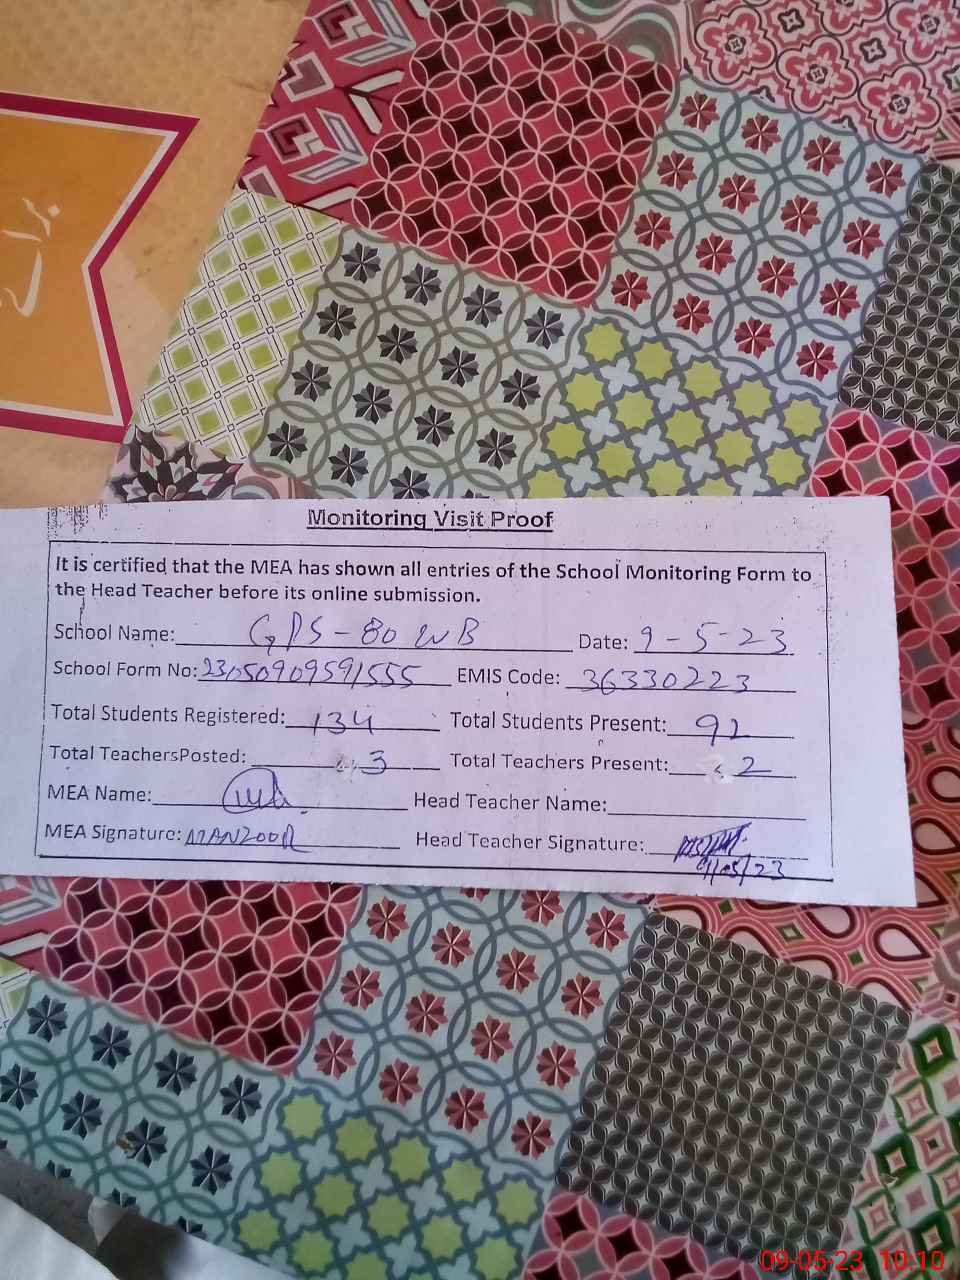 Monitoring Visit Proof
It is certified that the MEA has shown all entries of the School Monitoring Form to
the Head Teacher before its online submission.
School Name: GPS-80 WB Date: 9-5-23
School Form No: 23050909591555 EMIS Code: 36330223
Total Students Registered: 134 Total Students Present: 92
Total TeachersPosted: 3 Total Teachers Present: 2
MEA Name: Head Teacher Name:
MEA Signature: MANZOOR Head Teacher Signature:
9/05/23
09-05-23 10:10